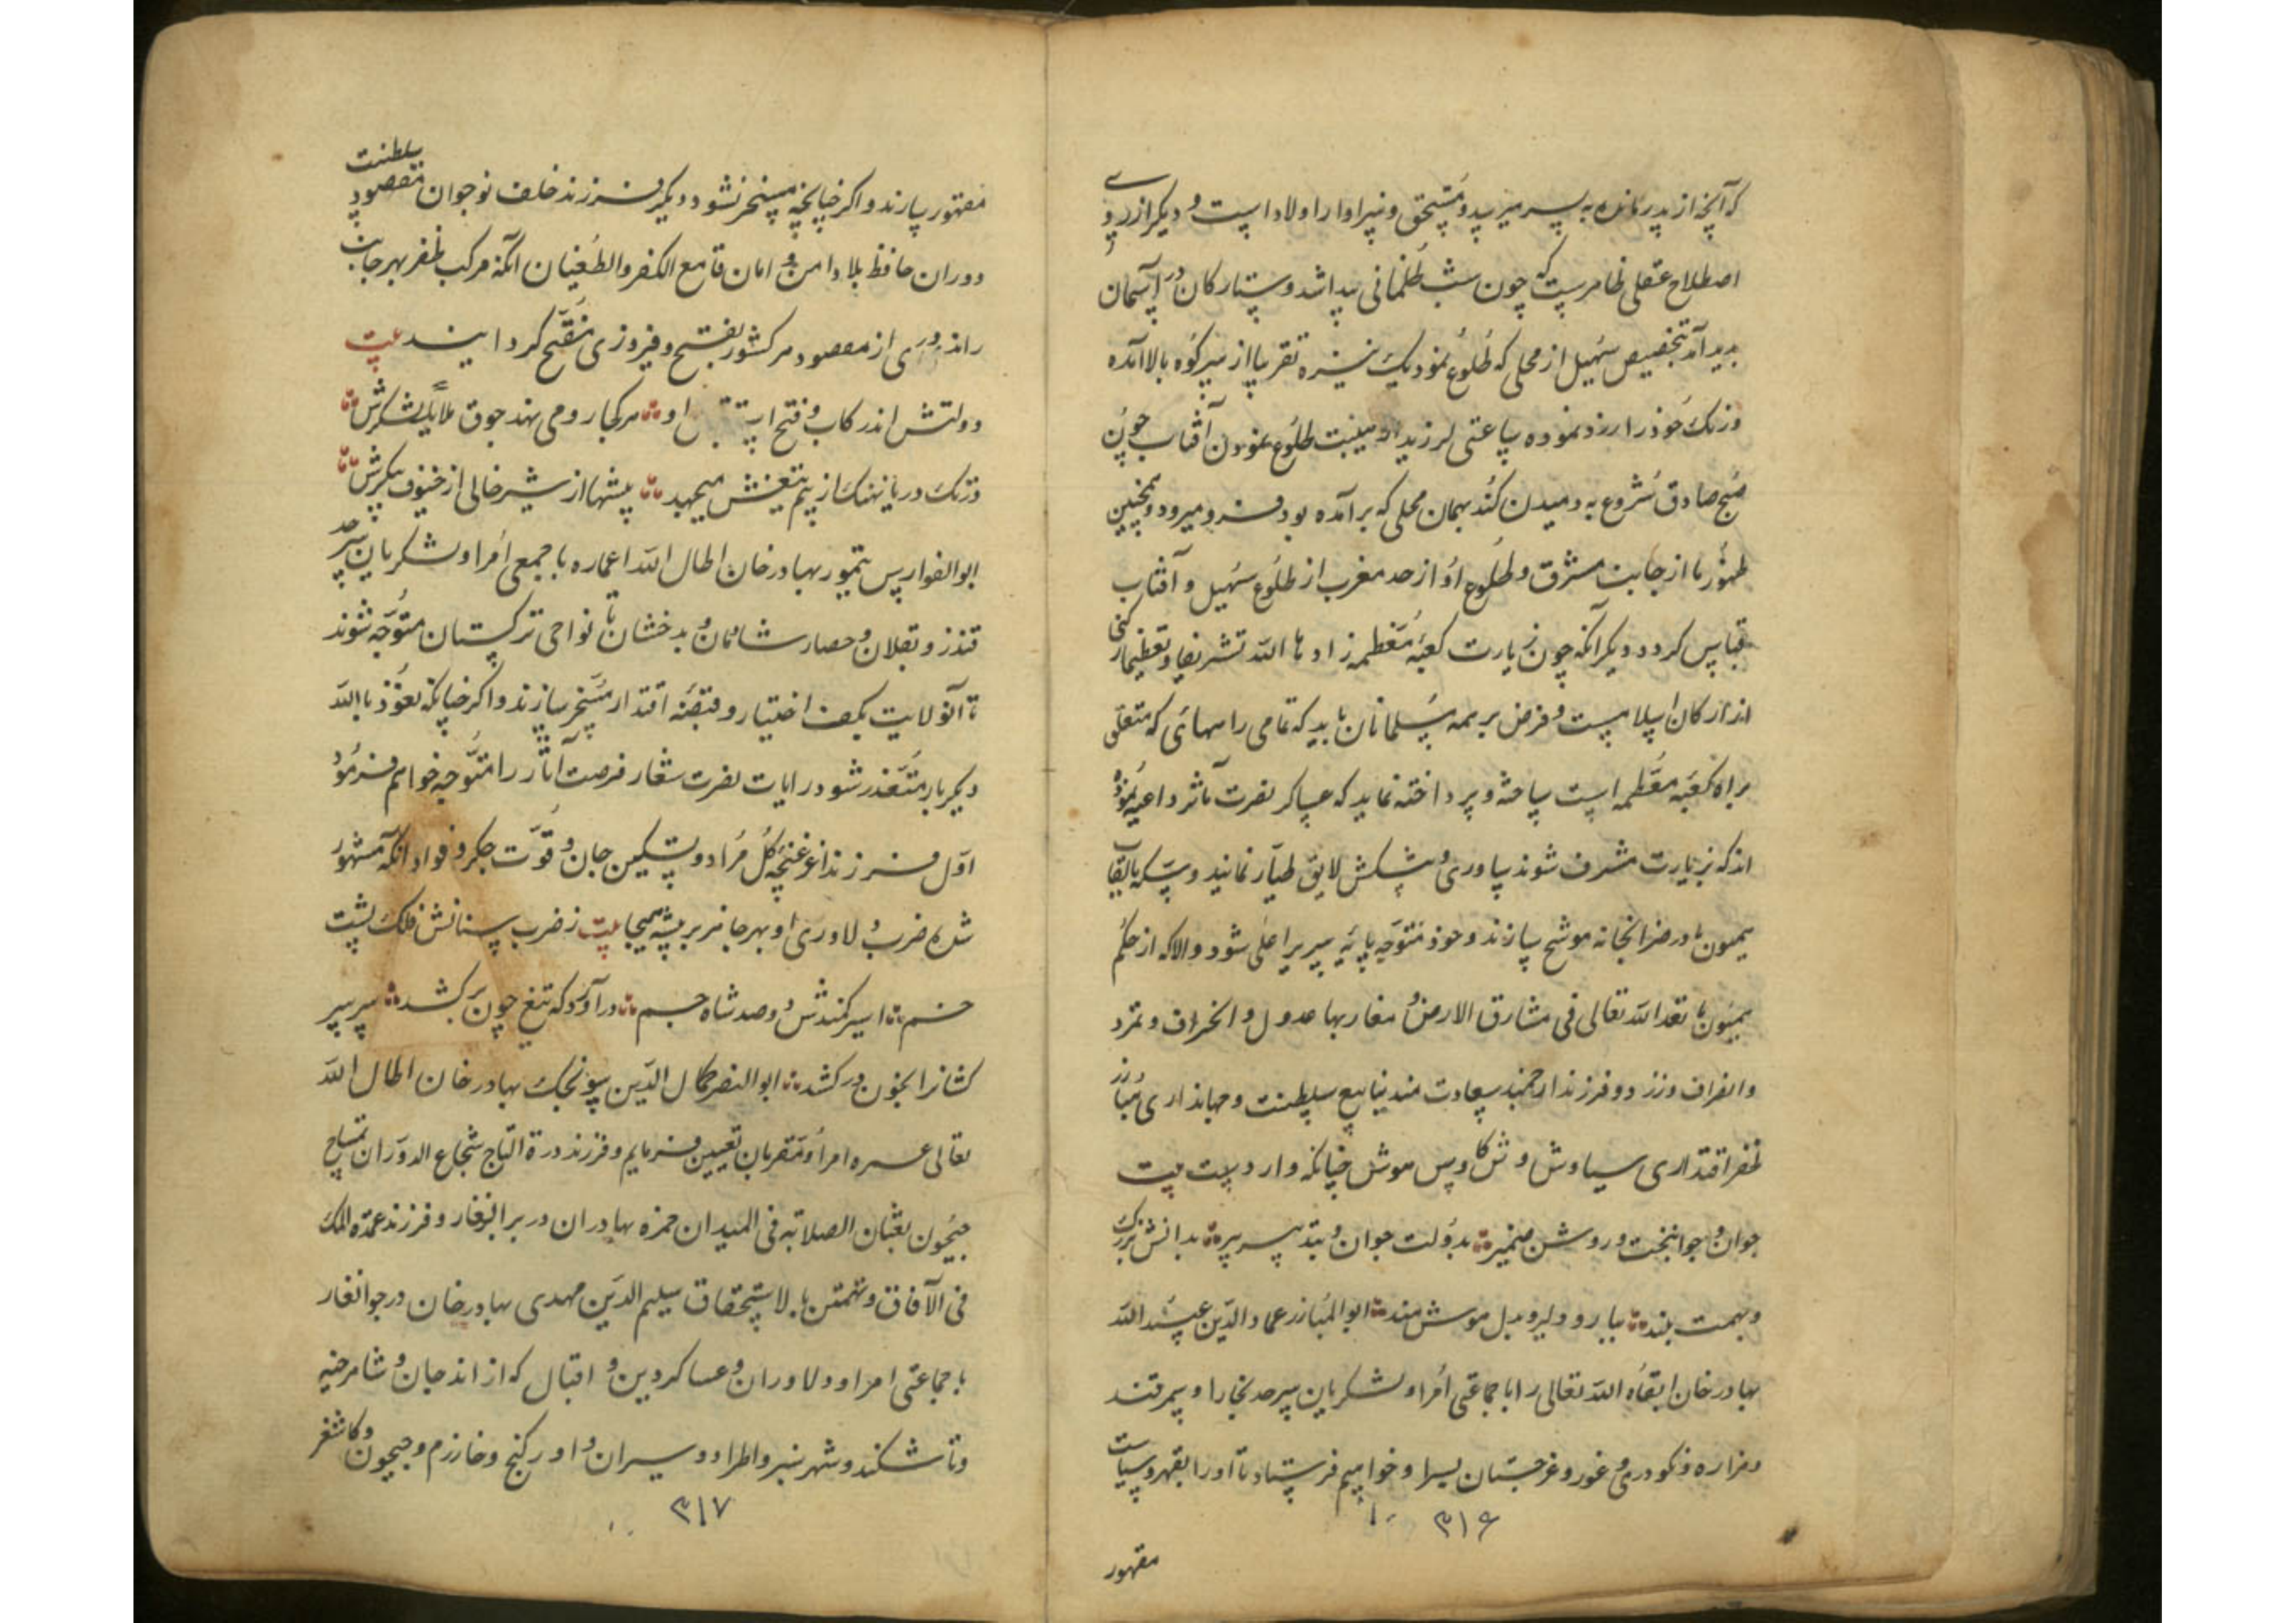 که آنچه از پدر مانده به پسر میرسد و مستحق و سزاوار اولاد است و دیگر از روی
اصطلاح عقلی ظاهرست که چون شب ظلمانی پیدا شد و ستارکان در آسمان
پدید آمد بتخصیص سهیل از محلی که طلوع نمود یک نیزه تقریبا از سر کوه بالا آمده
و رنک خود را زرد نموده ساعتی لرزید از هیبت طلوع نمودن آفتاب چون
صبح صادق شروع به دمیدن کند بهمان محلی که برآمده بود فرو میرود و همچنین
ظهور ما از جانب مشرق و طلوع او از حد مغرب از طلوع سهیل و آفتاب
قیاس کردد دیکر آنکه چون زیارت کعبه معظمه زادها الله تشریفا و تعظیما رکنی
از ارکان اسلامست و فرض بر همه مسلمانان باید که تمامی راههائی که متعلق
براه کعبه معظمه است ساخته و پرداخته نماید که عساکر نصرت مآثر داعیه نموده
اند که بزیارت مشرف شوند ساوری و پیشکش لایق طیار نمایند و سکه بالقاب
همیون ما در ضرابخانه موشح سازند و خود متوجه پایه سریر اعلی شود والا که از حکم
همیون ما نفذ الله تعالی فی مشارق الارض و مغاربها عدول و انحراف و تمرد
و انصراف ورزد دو فرزند ارجمند سعادت مند ینابیع سلطنت و جهانداری مبارز
ظفر اقتداری سیاوش وش کاوس هوش چنانکه وارد است بیت
جوان و جوانبخت و روشن ضمیر بدولت جوان و بتدبیر پیر بدانش بزرک
و بهمت بلند ببازو دلیر و بدل هوش مند ابوالمبارز عماد الدین عبید الله
بهادر خان ابقاه الله تعالی را با جماعتی امرا و لشکریان سرحد بخارا و سمرقند
و هزاره و نکودری و غور و غرجستان بسرا و خواهیم فرستاد تا او را بقهر و سیاست
۳۱۶
مقهور
مقهور سازند و اکر چنانچه مسخر نشود دیکر فرزند خلف نوجوان مقصود سلطنت
دوران حافظ بلاد امن و امان قامع الکفر والطغیان آنکه مرکب ظفر بهر جانب
راند از مقصود هر کشور بفتح و فیروزی کردانید بیت
دولتش اندر رکاب و فتح او هر کجا رو می نهد جوق ملایک لشکرش
در تک دریا نهنک از بیم تیغش میجهد بیشها از شیر خالی از خنوف پیکرش
ابوالفوارس تیمور بهادر خان اطال الله اعماره با جمعی امرا و لشکریان سرحد
قندز و بقلان و حصار شادمان و بدخشان تا نواحی ترکستان متوجه شوند
تا آن ولایت بکف اختیار و قبضه اقتدار مسخر سازند و اکر چنانکه نعوذ بالله
دیکر بار متعذر شود رایات نصرت شعار فرصت آثار را متوجه خواهم فرمود
اول فرزند اعز غنچه کل مراد و تسکین جان و قوت جکر و فواد آنکه مشهور
شده ضرب و لاوری او بهر جا هزبر بیشه هیجا بیت ز ضرب سنانش فلک پشت
خم اسیر کمندش دو صد شاه جم درآورد که تیغ چون برکشد سر سر
کشانرا بخون درکشد ابوالنصر کمال الدین سونجک بهادر خان اطال الله
تعالی عمره امرا و مقربان تعیین فرمایم و فرزند درة التاج شجاع الدوران تمساح
جیحون ثعبان الصلابه فی المیدان حمزه بهادران در برانغار و فرزند عمدة الملک
فی الآفاق و تهمتن بالاستحقاق سلیم الدین مهدی بهادر خان در جوانغار
با جماعتی امرا و دلاوران و عساکر دین و اقبال که از اندجان و شاهرخیه
و تاشکند و شهر سبز و اطرار و سیران و اورکنج و خارزم و جیحون و کاشغر
۳۱۷